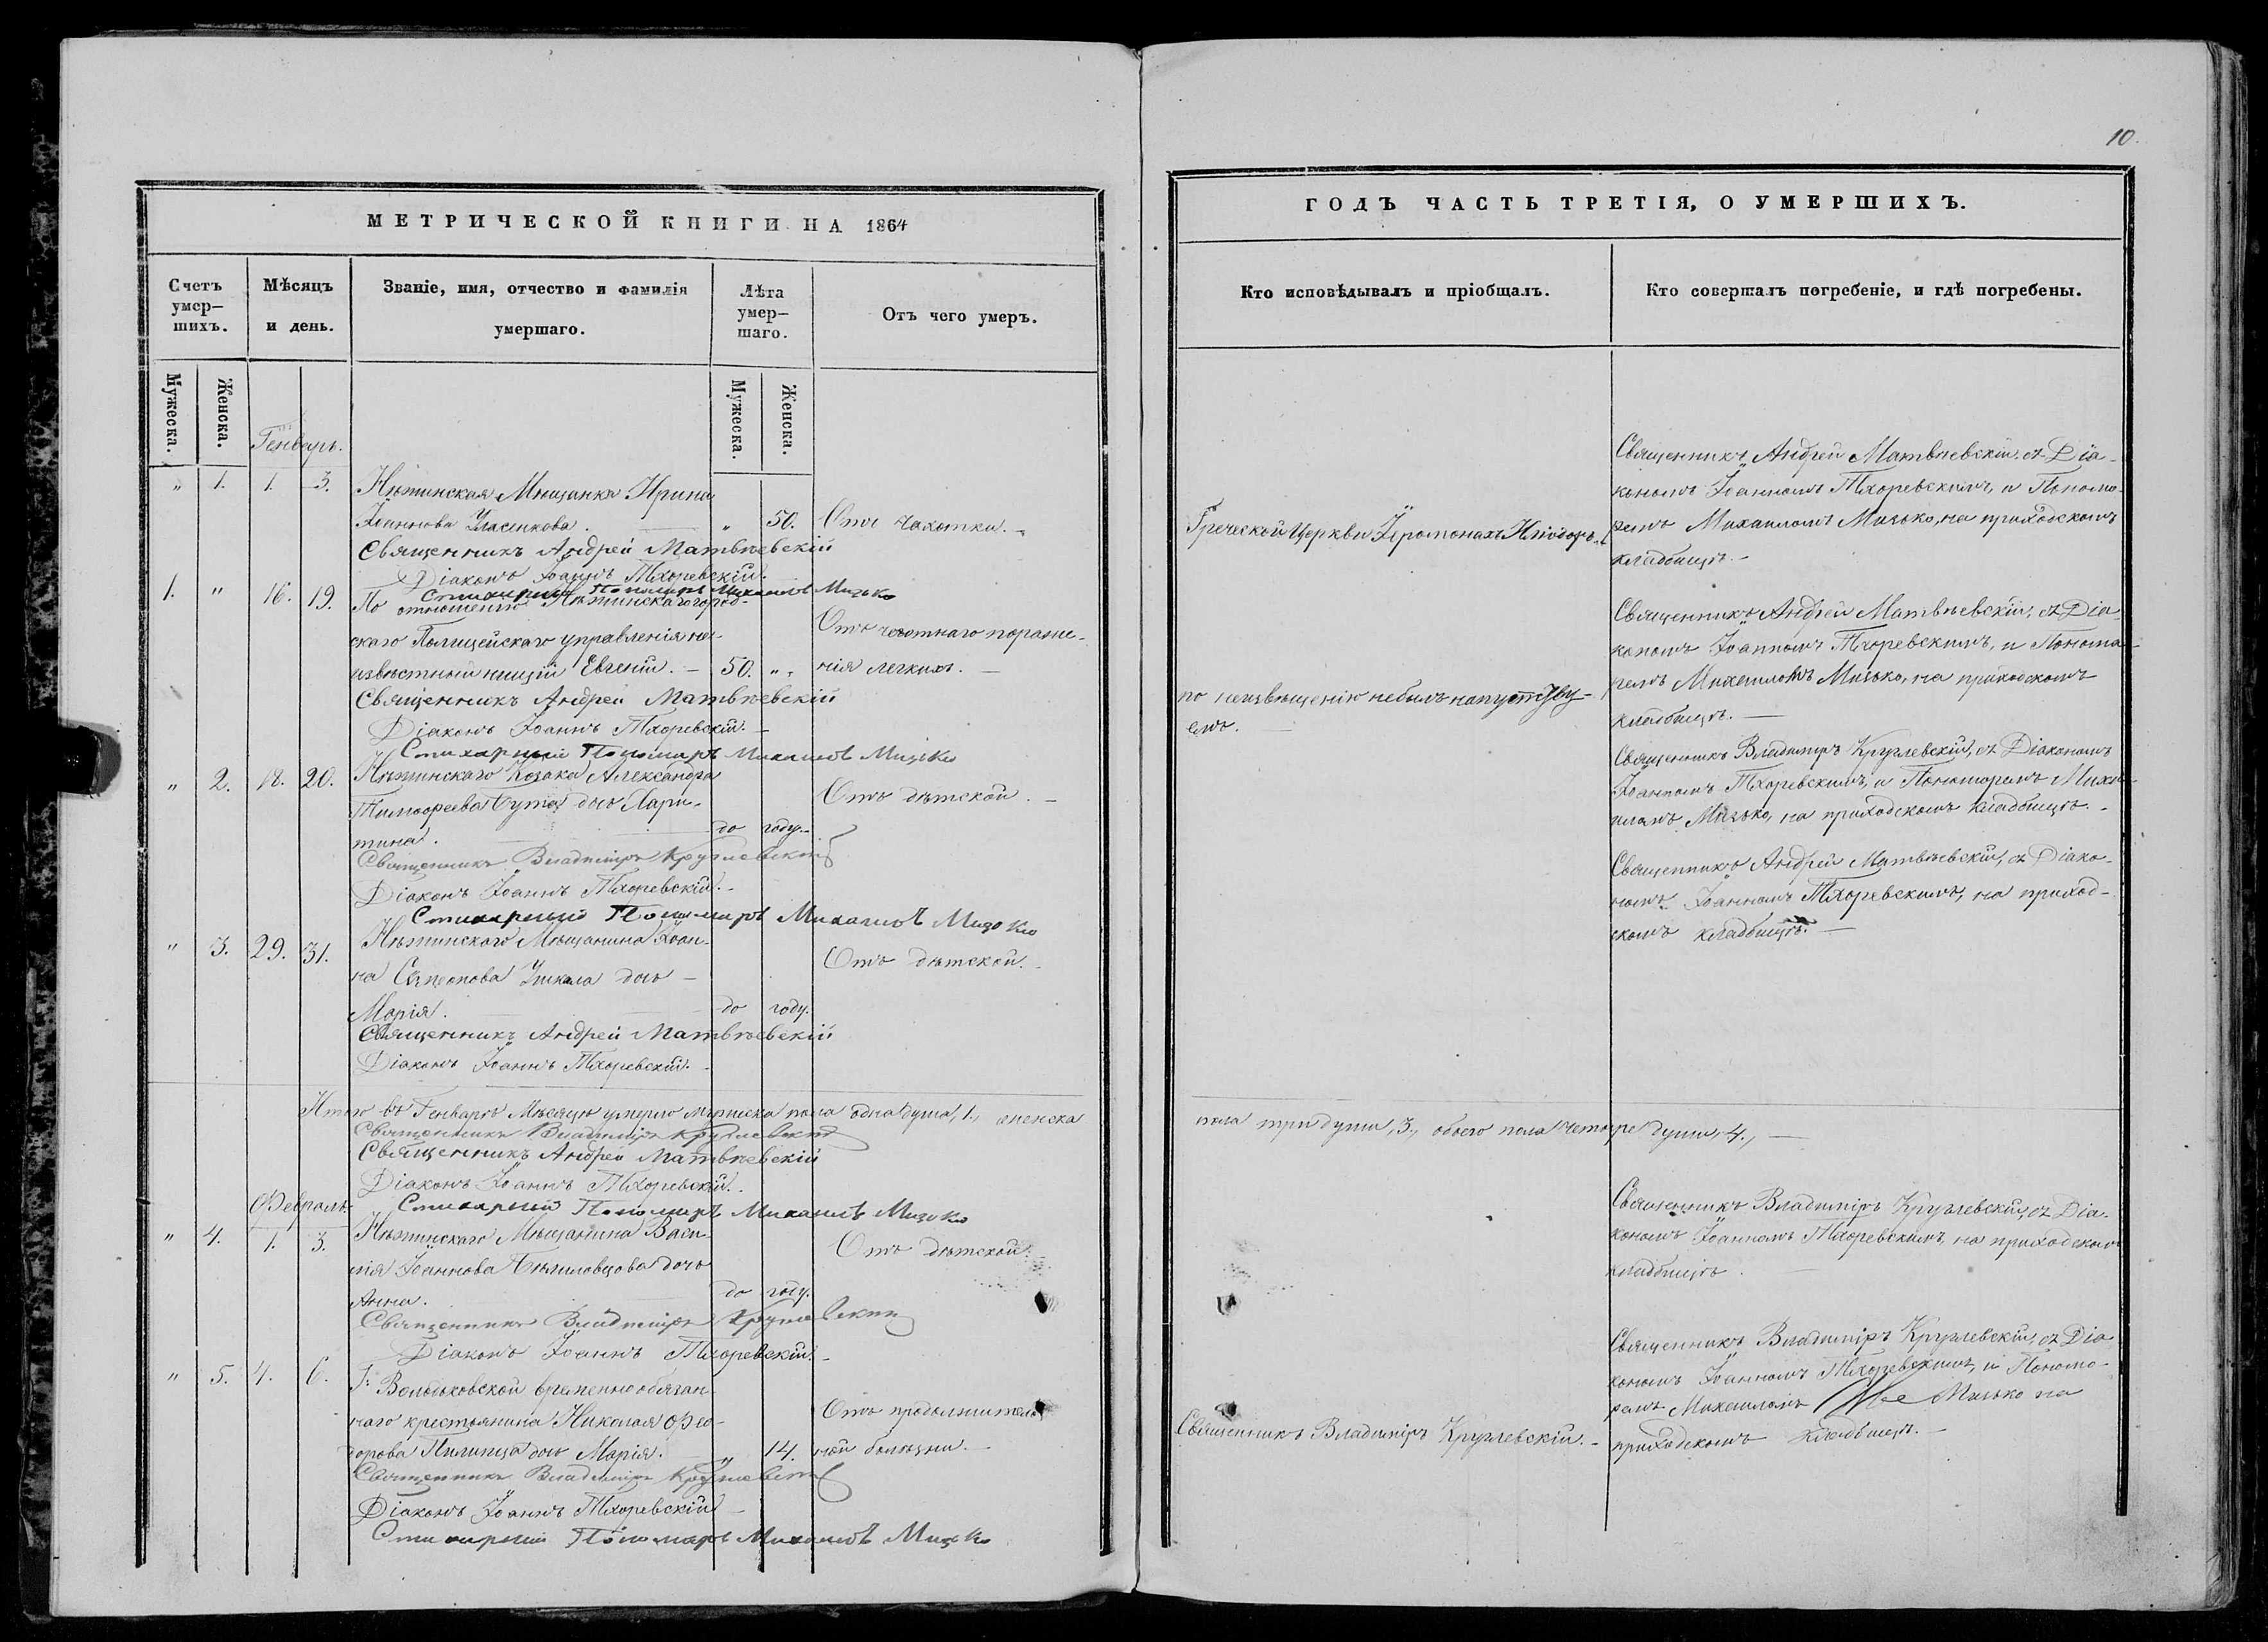 МЕТРИЧЕСКОЙ КНИГИ НА 1864
Счетъ умер-
шихъ.
Мѣсяцъ
и день.
Званіе, имя, отчество и фамилія
умершаго.
Лѣта
умер-
шаго.
Отъ чего умеръ.
Мужеска.
Женска.
Мужеска.
Женска.
Генварь.
" 1. 1. 3. Нѣжинская Мѣщанка Ирина
Іоаннова " 50. Отъ чахотки.
Священникъ Андрей Матвѣевскій
Діаконъ Іоаннъ Тхоревскій.
Стихарный Пономарь Михаилъ Мизько
1. " 16. 19. По отношенію Нѣжинскаго город-
скаго Полицейскаго управленія не-
извѣстный нищій Евгеній. 50. " Отъ пораже-
нія легкихъ.
Священникъ Андрей Матвѣевскій
Діаконъ Іоаннъ Тхоревскій.
Стихарный Пономарь Михаилъ Мизько
" 2. 18. 20. Нѣжинскаго Козака Александра
Тимофеева дочь Хари-
тина. до году. Отъ дѣтской.
Священникъ Владиміръ Круглевскій
Діаконъ Іоаннъ Тхоревскій.
Стихарный Пономарь Михаилъ Мизько
" 3. 29. 31. Нѣжинскаго Мѣщанина Іоан-
на дочь
Марія. до году. Отъ дѣтской.
Священникъ Андрей Матвѣевскій
Діаконъ Іоаннъ Тхоревскій.
Итого въ Генварѣ Мѣсяцѣ умерло мужеска пола одна душа, 1., женска
Священникъ Владиміръ Круглевскій
Священникъ Андрей Матвѣевскій
Діаконъ Іоаннъ Тхоревскій.
Стихарный Пономарь Михаилъ Мизько
Февраль.
" 4. 1. 3. Нѣжинскаго Мѣщанина Васи-
лія Іоаннова дочь
Анна. до году. Отъ дѣтской.
Священникъ Владиміръ Круглевскій
Діаконъ Іоаннъ Тхоревскій.
" 5. 4. 6. Г: временно обязан-
наго крестьянина Николая Фео-
дорова дочь Марія. " 14. Отъ продолжитель-
ной болѣзни.
Священникъ Владиміръ Круглевскій
Діаконъ Іоаннъ Тхоревскій
Стихарный Пономарь Михаилъ Мизько
10.
ГОДЪ ЧАСТЬ ТРЕТІЯ, О УМЕРШИХЪ.
Кто исповѣдывалъ и пріобщалъ.
Кто совершалъ погребеніе, и гдѣ погребены.
Греческой Церкви Іеромонахъ Иліодоръ.
Священникъ Андрей Матвѣевскій, съ Діа-
кономъ Іоанномъ Тхоревскимъ, и Понома-
ремъ Михаиломъ Мизько, на приходскомъ
кладбищѣ.
по неизвѣщенію небылъ напутству-
емъ.
Священникъ Андрей Матвѣевскій, съ Діа-
кономъ Іоанномъ Тхоревскимъ, и Понома-
ремъ Михаиломъ Мизько, на приходскомъ
кладбищѣ.
Священникъ Владиміръ Круглевскій, съ Діакономъ
Іоанномъ Тхоревскимъ, и Пономаремъ Миха-
иломъ Мизько, на приходскомъ кладбищѣ.
Священникъ Андрей Матвѣевскій, съ Діако-
номъ Іоанномъ Тхоревскимъ, на приход-
скомъ кладбищѣ.
пола три души, 3., обоего пола четыре души, 4.,
Священникъ Владиміръ Круглевскій, съ Діа-
кономъ Іоанномъ Тхоревскимъ, на приходскомъ
кладбищѣ.
Священникъ Владиміръ Круглевскій.
Священникъ Владиміръ Круглевскій, съ Діа-
кономъ Іоанномъ Тхоревскимъ, и Понома-
ремъ Михаиломъ Мизько на
приходскомъ кладбищѣ.